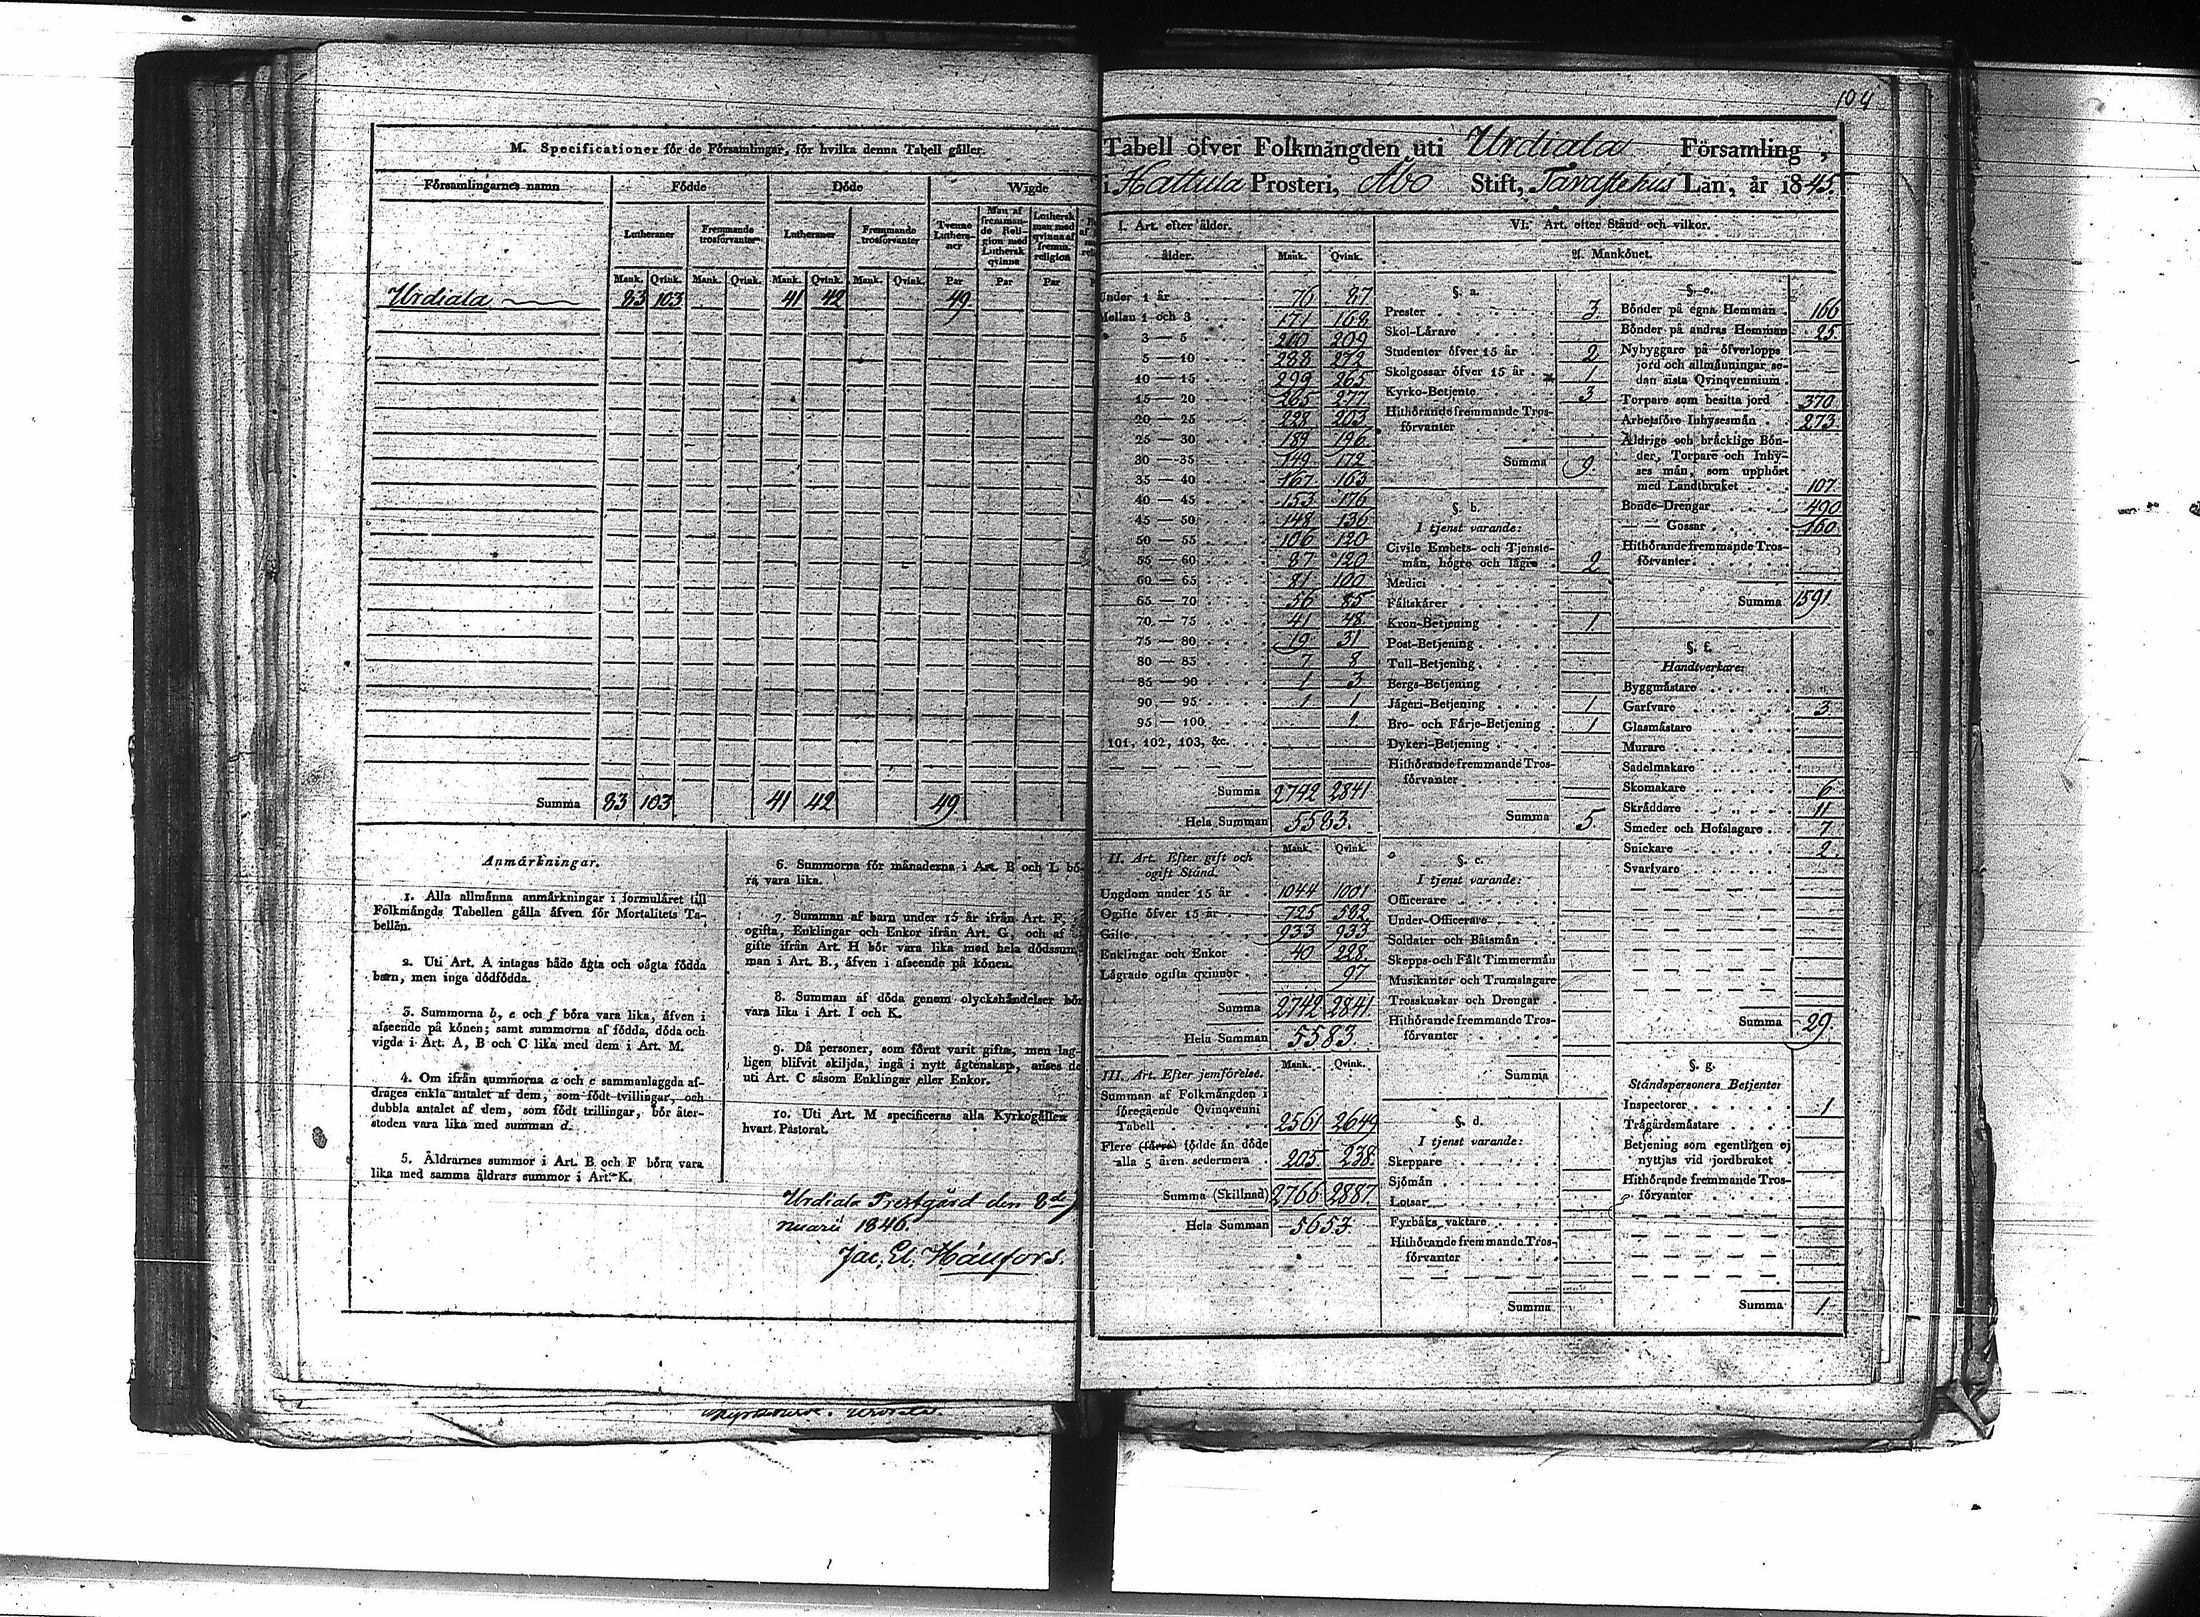 M. Specificationer för de Församlingar, för hvilka denna Tabell gäller.
Församlingarnes namn Födde Döde Wigde
Lutheraner Fremmande trosförvanter Lutheraner Fremmande trosförvanter Tvenne Lutheraner Man af fremmande Religion med Luthersk qvinna Luthersk man med qvinna af fremm. religion
Mank. Qvink. Mank. Qvink. Mank. Qvink. Mank. Qvink. Par Par Par
Urdiala 83 103 41 42 49
Summa 83 103 41 42 49
Anmärkningar.
1. Alla allmänna anmärkningar i formuläret till
Folkmängds Tabellen gälla äfven för Mortalitets Ta-
bellen.
2. Uti Art. A intagas både ägta och oägta födda
barn, men inga dödfödda.
3. Summorna b, e och f böra vara lika, äfven i
afseende på könen; samt summorna af födda, döda och
vigda i Art. A, B och C lika med dem i Art. M.
4. Om ifrån summorna a och c sammanlaggda af-
drages enkla antalet af dem, som födt tvillingar, och
dubbla antalet af dem, som födt trillingar, bör åter-
stoden vara lika med summan d.
5. Åldrarnes summor i Art. B och F böra vara
lika med samma åldrars summor i Art. K.
6. Summorna för månaderna i Art. B och L bö-
ra vara lika.
7. Summan af barn under 15 år ifrån Art. F,
ogifta, Enklingar och Enkor ifrån Art. G, och af
gifte ifrån Art. H bör vara lika med hela dödssum-
man i Art. B., äfven i afseende på könen.
8. Summan af döda genom olyckshändelser bör
vara lika i Art. I och K.
9. Då personer, som förut varit gifta, men lag-
ligen blifvit skiljda, ingå i nytt ägtenskap, anses de
uti Art. C såsom Enklingar eller Enkor.
10. Uti Art. M specificeras alla Kyrkogällen
hvart Pastorat.
Urdiala Prestgård den 8de J
nuarii 1846.
104
Tabell öfver Folkmängden uti Urdiala Församling,
i Hattula Prosteri, Åbo Stift, Tavastehus Län, år 1845.
I. Art. efter ålder.
ålder. Mank. Qvink.
Under 1 år 76 87
Mellan 1 och 3 171 168
3 — 5 200 209
5 — 10 288 272
10 — 15 299 265
15 — 20 265 277
20 — 25 228 203
25 — 30 189 196
30 — 35 149 172
35 — 40 167 163
40 — 45 153 176
45 — 50 148 136
50 — 55 106 120
55 — 60 87 120
60 — 65 81 100
65 — 70 56 85
70 — 75 41 48
75 — 80 19 31
80 — 85 7 8
85 — 90 1 3
90 — 95 1 1
95 — 100 1
101, 102, 103, &c.
Summa 2742 2841
Hela Summan 5583.
II. Art. Efter gift och ogift Stånd. Mank. Qvink.
Ungdom under 15 år 1044 1001
Ogifte öfver 15 år 725 582
Gifte 933 933
Enklingar och Enkor 40 228
Lägrade ogifta qvinnor 97
Summa 2742 2841
Hela Summan 5583.
III. Art. Efter jemförelse. Mank. Qvink.
Summan af Folkmängden i
föregående Qvinqvenni
Tabell 2561 2649
Flere (färre) födde än döde
alla 5 åren sedermera 205. 238.
Summa (Skillnad) 2766 2887.
Hela Summan 5653.
VI. Art. efter Stånd och vilkor.
A. Mankönet.
§. a.
Prester 3.
Skol-Lärare
Studenter öfver 15 år 2
Skolgossar öfver 15 år 1
Kyrko-Betjente 3
Hithörande fremmande Tros-
förvanter
Summa 9.
§. b.
I tjenst varande:
Civile Embets- och Tjenste-
män, högre och lägre 2
Medici
Fältskärer
Kron-Betjening 1.
Post-Betjening
Tull-Betjening
Bergs-Betjening
Jägeri-Betjening 1
Bro- och Färje-Betjening 1
Dykeri-Betjening
Hithörande fremmande Tros-
förvanter
Summa 5.
§. c.
I tjenst varande:
Officerare
Under-Officerare
Soldater och Båtsmän
Skepps-och Fält Timmermän
Musikanter och Trumslagare
Trosskuskar och Drengar
Hithörande fremmande Tros-
förvanter
Summa
§. d.
I tjenst varande:
Skeppare
Sjömän
Lotsar
Fyrbåks vaktare
Hithörande fremmande Tros-
förvanter
Summa
§. e.
Bönder på egna Hemman 166
Bönder på andras Hemman 25.
Nybyggare på öfverlopps
jord och allmänningar se-
dan sista Qvinqvennium
Torpare som besitta jord 370
Arbetsföre Inhysesmän 273.
Åldrige och bräcklige Bön-
der, Torpare och Inhy-
ses män, som upphört
med Landtbruket 107.
Bonde-Drengar 490
— — Gossar 160
Hithörande fremmande Tros-
förvanter
Summa 1591.
§. f.
Handtverkare:
Byggmästare
Garfvare 3.
Glasmästare
Murare
Sadelmakare
Skomakare 6
Skräddare 11
Smeder och Hofslagare 7
Snickare 2.
Svarfvare
Summa 29.
§. g.
Ståndspersoners Betjente:
Inspectorer 1
Trägårdsmästare
Betjening som egentligen ej
nyttjas vid jordbruket
Hithörande fremmande Tros-
förvanter
Summa 1